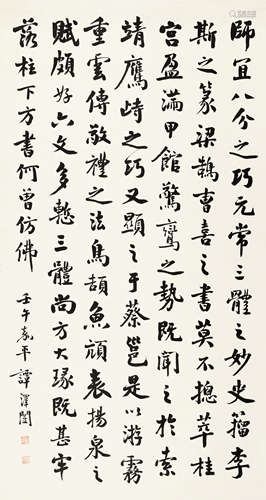 師宜八分之巧元常三體之妙史籀李
斯之篆梁鵠曹喜之書莫不揔萃桂
宮盈滿甲館驚鸞之勢既聞之於索
靖鷹峙之巧又顯之于蔡邕是以游霧
重雲傳敬禮之法鳥頡魚頏表揚泉之
賦頗好六文多慙三體尚方大瑑既甚牢
落柱下方書何曾仿佛
壬午嘉平譚澤闓